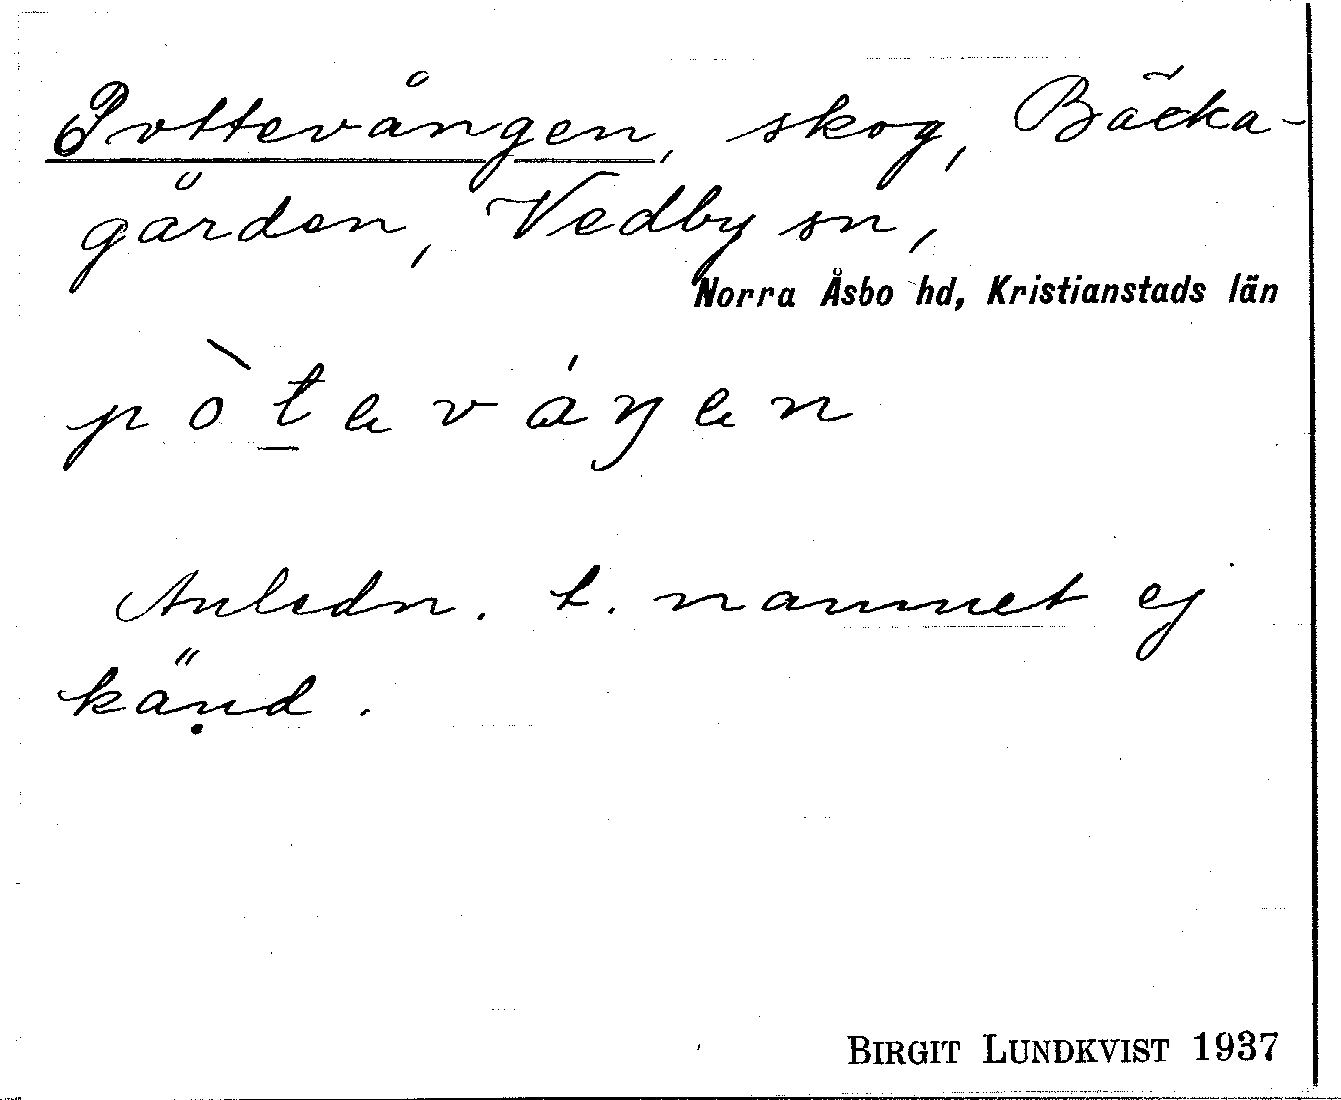 Pottevången, skog, Bäcka-
gården, Vedby sn,
Norra Åsbo hd, Kristianstads län
pòteváŋen
Anledn. t. namnet ej
känd.
BIRGIT LUNDKVIST 1937